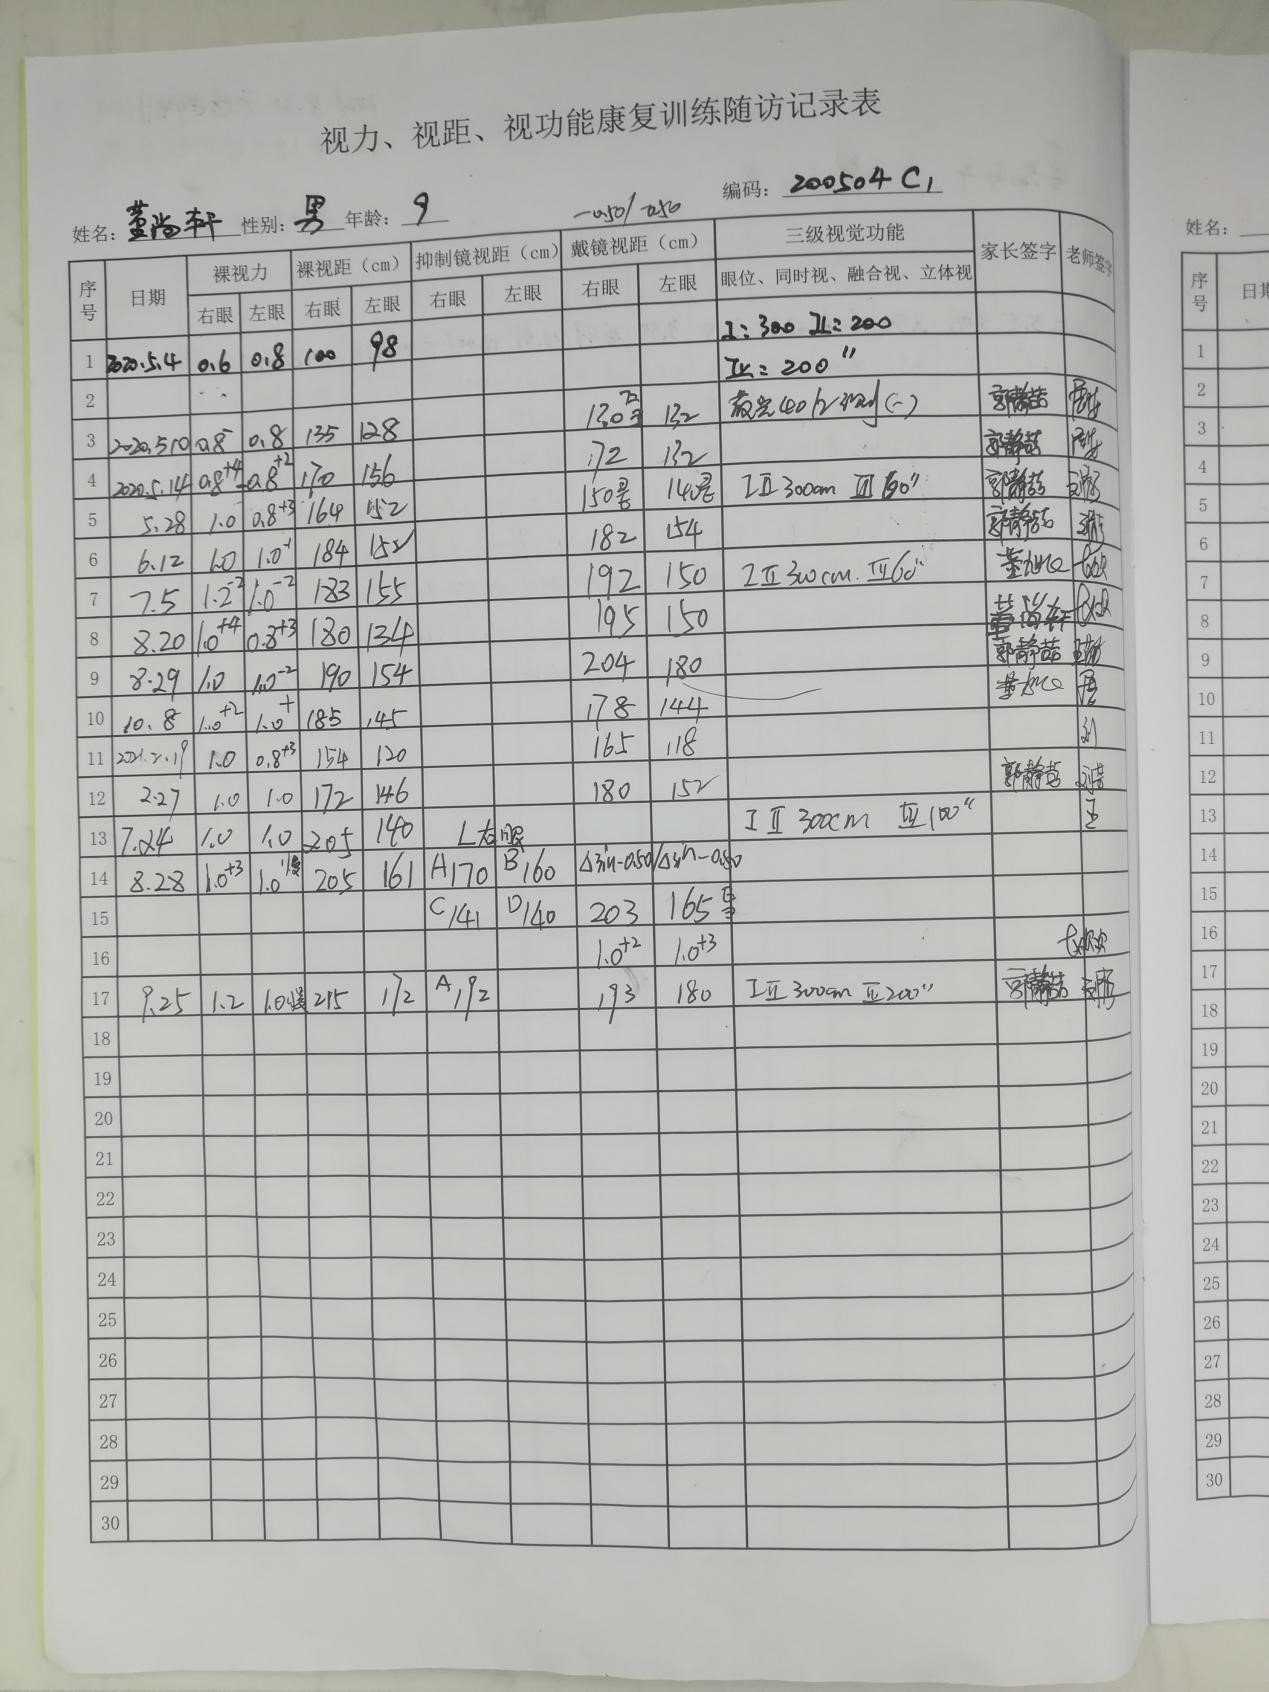 视力、视距、视功能康复训练随访记录表
编码: 200504 C1
姓名: 董尚轩 性别: 男 年龄: 9
-0.50/-0.50
序号 日期 裸视力 裸视距（cm） 抑制镜视距（cm） 戴镜视距（cm） 三级视觉功能 家长签字 老师签字
右眼 左眼 右眼 左眼 右眼 左眼 右眼 左眼 眼位、同时视、融合视、立体视
I: 300 II: 200
1 2020.5.4 0.6 0.8 100 98 III: 200"
2 130 132 (-) 郭静喆
3 2020.5.10 0.8- 0.8 135 128 172 132 郭静喆
4 2020.5.14 0.8+4 0.8+2 170 156 150 140 I II 300cm III 60" 郭静喆
5 5.28 1.0 0.8+3 164 152 182 154 郭静喆
6 6.12 1.0 1.0-1 184 152 192 150 I II 300cm. III 60"
7 7.5 1.2-2 1.0-2 183 155 195 150 董尚轩
8 8.20 1.0+4 0.8+3 180 134 204 180 郭静喆
9 8.29 1.0 1.0-2 190 154 178 144
10 10.8 1.0+2 1.0+ 185 145 165 118 刘
11 2021.2.19 1.0 0.8+3 154 120 180 152 郭静喆
12 2.27 1.0 1.0 172 146 I II 300cm III 100" 王
13 7.24 1.0 1.0 205 140 L右眼
14 8.28 1.0+3 1.0 205 161 A170 B160 -0.50/ -0.50
15 C141 D140 203 165
16 1.0+2 1.0+3
17 9.25 1.2 1.0 215 172 A192 193 180 I II 300cm III 200" 郭静喆
18
19
20
21
22
23
24
25
26
27
28
29
30
姓名:
序号 日期
1
2
3
4
5
6
7
8
9
10
11
12
13
14
15
16
17
18
19
20
21
22
23
24
25
26
27
28
29
30